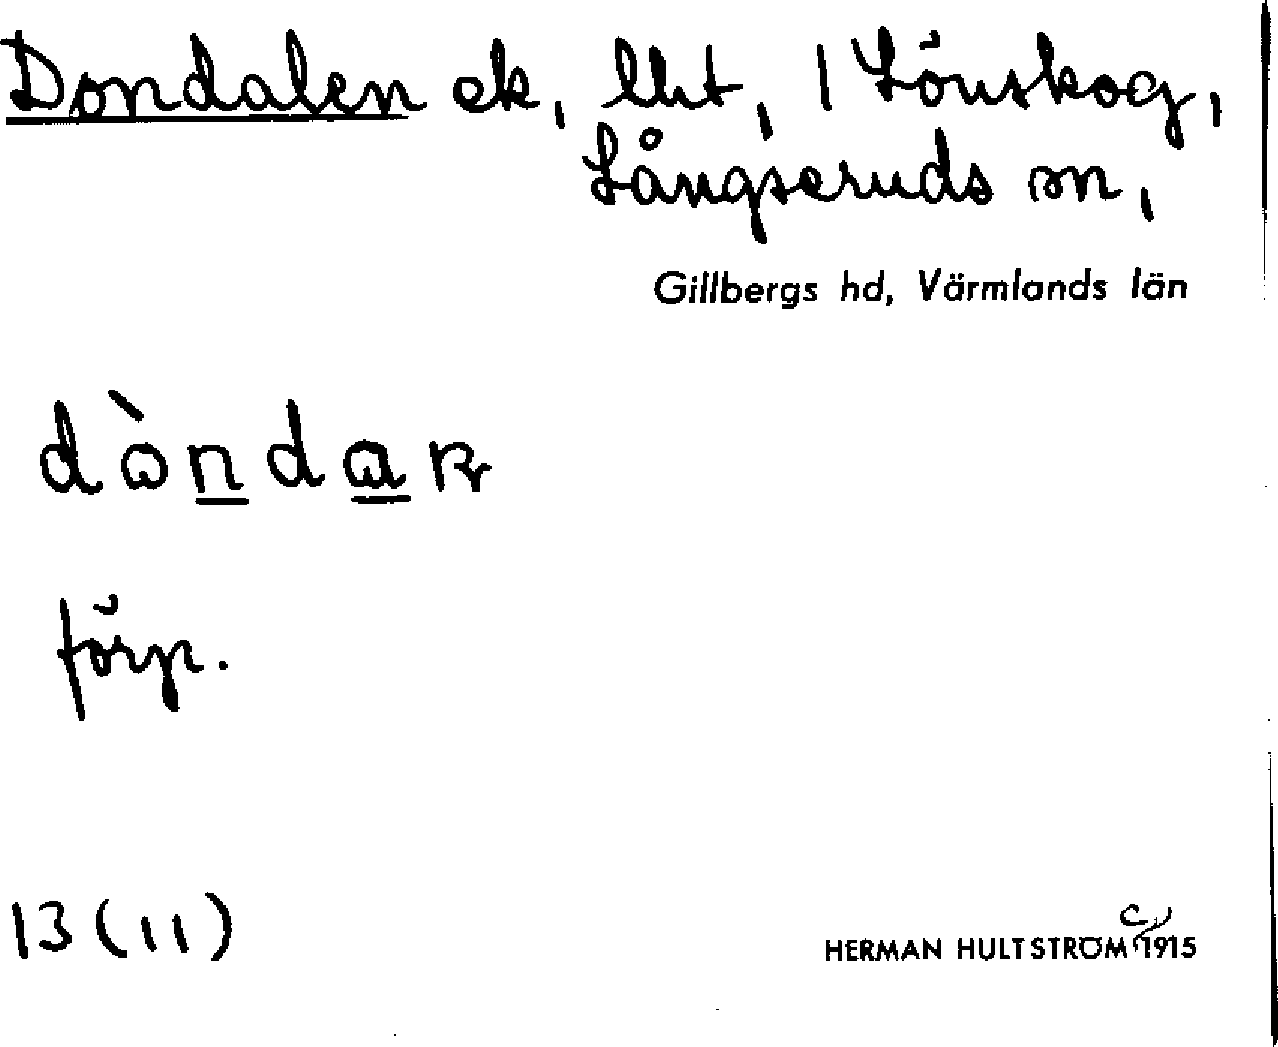 Dondalen ek, lht, 1 Lönskog,
Långseruds sn,
Gillbergs hd, Värmlands län
förp.
13 (11)
HERMAN HULTSTRÖM C 1915